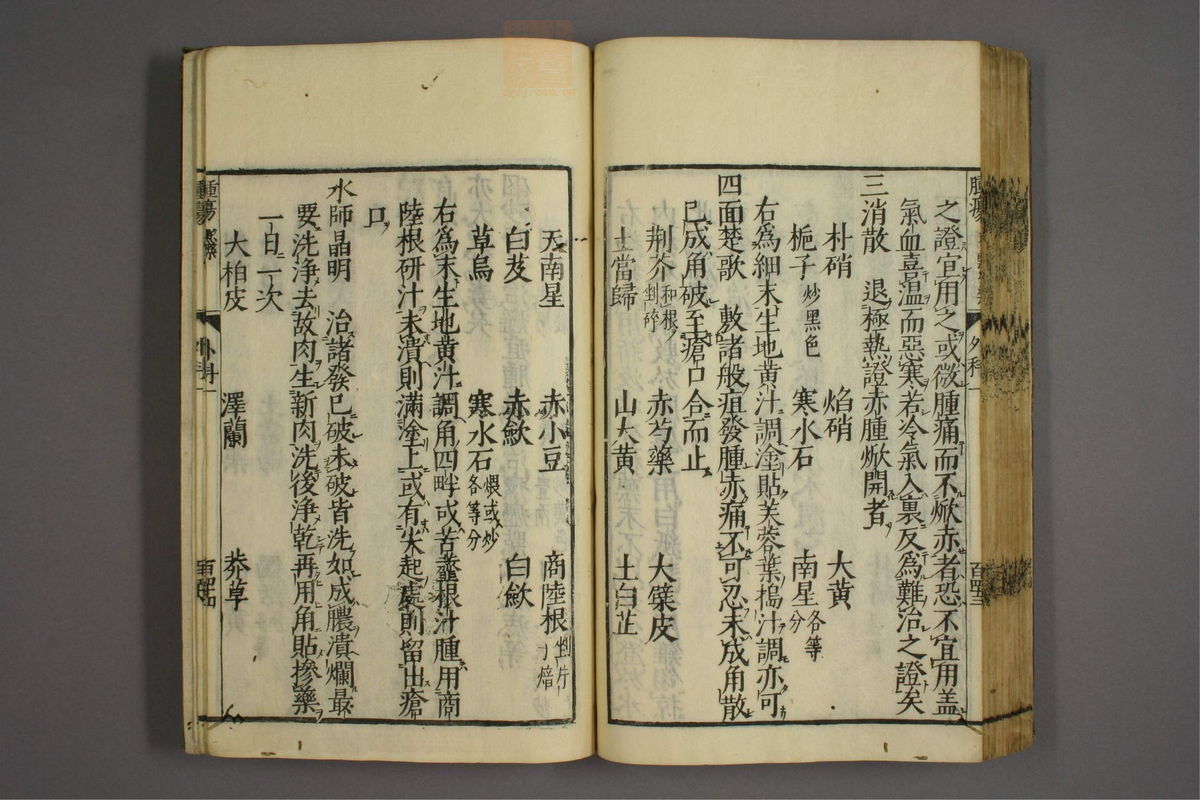 之證宜用之或微腫痛而不焮赤者恐不宜用盖
氣血喜温而惡寒若冷氣入裏反爲難治之證矣
三消散 退極熱證赤腫焮開者
朴硝 焰硝 大黄
梔子炒黑色 寒水石 南星各等分
右爲細末生地黄汁調塗貼芙蓉葉搗汁調亦可
四面楚歌 敷諸般疽發腫赤痛不可忍未成角散
已成角破至瘡口合而止
荆芥和根剉碎 赤芍藥 大蘗皮
土當歸 山大黄 土白芷
天南星 赤小豆 商陸根剉片焙
白芨 赤歛 白歛
草烏 寒水石煨或炒各等分
右爲末生地黄汁調角四畔或苦虀根汁腫用商
陸根研汁未潰則滿塗上或有尖起處則留出瘡
口
水師晶明 治諸發已破未破皆洗如成膿潰爛最
要洗浄去故肉生新肉洗後浄乾再用角貼摻藥
一日一次
大柏皮 澤蘭 莽草